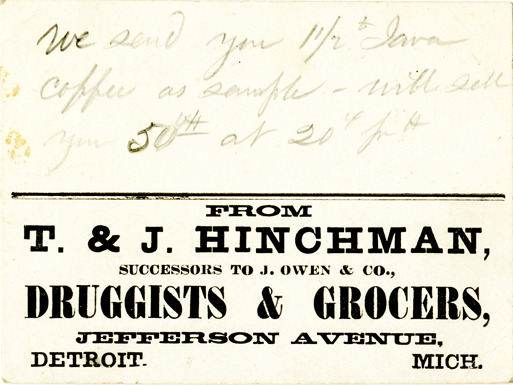 We send you 1 1/2 ℔ Java
coffee as sample - will sell
you 50 ℔ at 20 ¢ pr ℔
FROM
T. & J. HINCHMAN,
SUCCESSORS TO J. OWEN & CO.,
DRUGGISTS & GROCERS,
JEFFERSON AVENUE,
DETROIT. MICH.